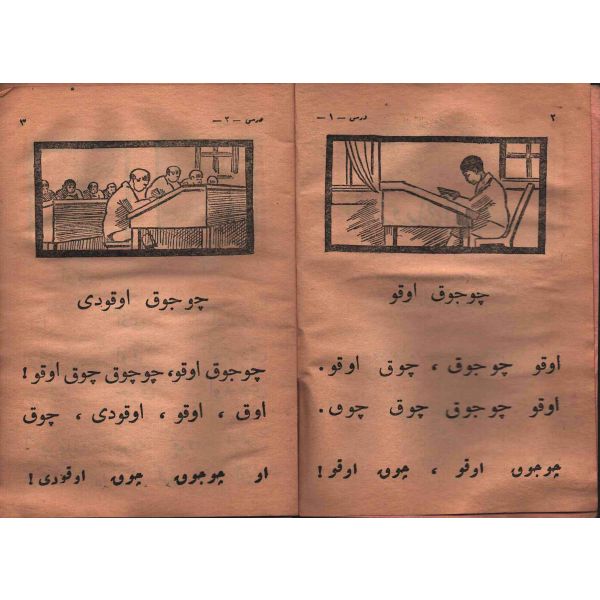 ٢ درسی – ١ –
چوجوق اوقو
اوقو چوجوق ، چوق اوقو .
اوقو چوجوق چوق چوق .
چوجوق اوقو ، چوق اوقو !
درسی – ٢ – ٣
چوجوق اوقودی
چوجوق اوقو، چوجوق چوق اوقو !
اوق ، اوقو ، اوقودی ، چوق
او چوجوق چوق اوقودی !